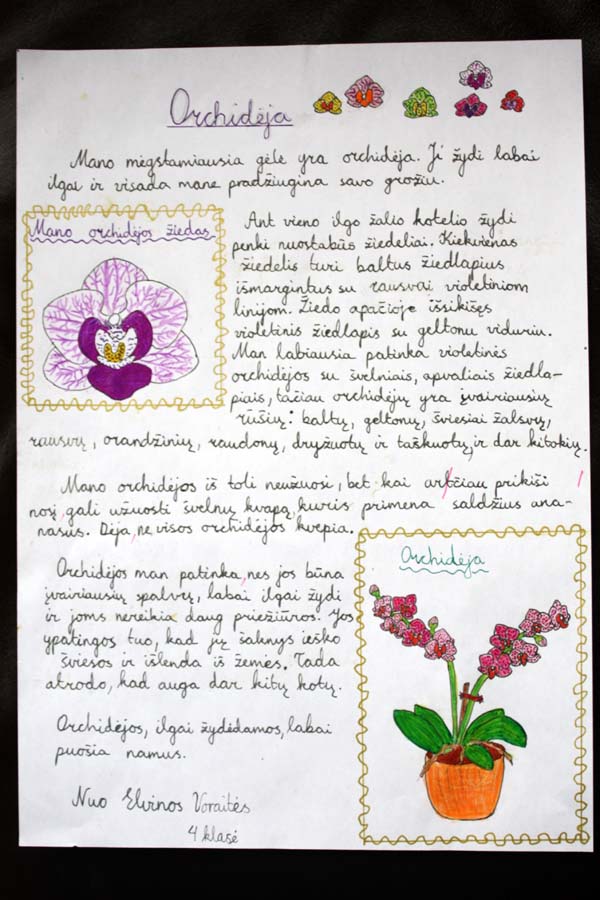 Orchidėja
Mano mėgstamiausia gėlė yra orchidėja. Ji žydi labai
ilgai ir visada mane pradžiugina savo grožiu.
Mano orchidėjos žiedas
Ant vieno ilgo žalio kotelio žydi
penki nuostabūs žiedeliai. Kiekvienas
žiedelis turi baltus žiedlapius
išmargintus su rausvai violetiniom
linijom. Žiedo apačioje išsikišęs
violetinis žiedlapis su geltonu viduriu.
Man labiausia patinka violetinės
orchidėjos su švelniais, apvaliais žiedla-
piais, tačiau orchidėjų yra įvairiausių
rūšių: baltų, geltonų, šviesiai žalsvų,
rausvų, orandžinių, raudonų, dryžuotų ir taškuotų, ir dar kitokių.
Mano orchidėjos iš toli neužuosi, bet kai arčiau prikiši
nosį, gali užuosti švelnų kvapą, kuris primena saldžius ana-
nasus. Deja, ne visos orchidėjos kvepia.
Orchidėja
Orchidėjos man patinka, nes jos būna
įvairiausių spalvų, labai ilgai žydi
ir joms nereikia daug priežiūros. Jos
ypatingos tuo, kad jų šaknys ieško
šviesos ir išlenda iš žemės. Tada
atrodo, kad auga dar kitų kotų.
Orchidėjos, ilgai žydėdamos, labai
puošia namus.
Nuo Elvinos Voraitės
4 klasė